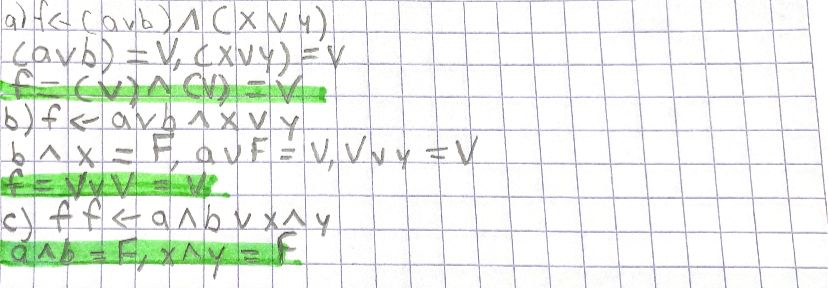 a) f ← (a∨b) ∧ (x ∨ y)
(a∨b) = V, (x∨y) = V
f = (V) ∧ (V) = V
b) f ← a∨b ∧ x ∨ y
b ∧ x = F, a∨F = V, V∨y = V
f = V∨V = V
c) f f ← a∧b ∨ x∧y
a∧b = F, x∧y = F